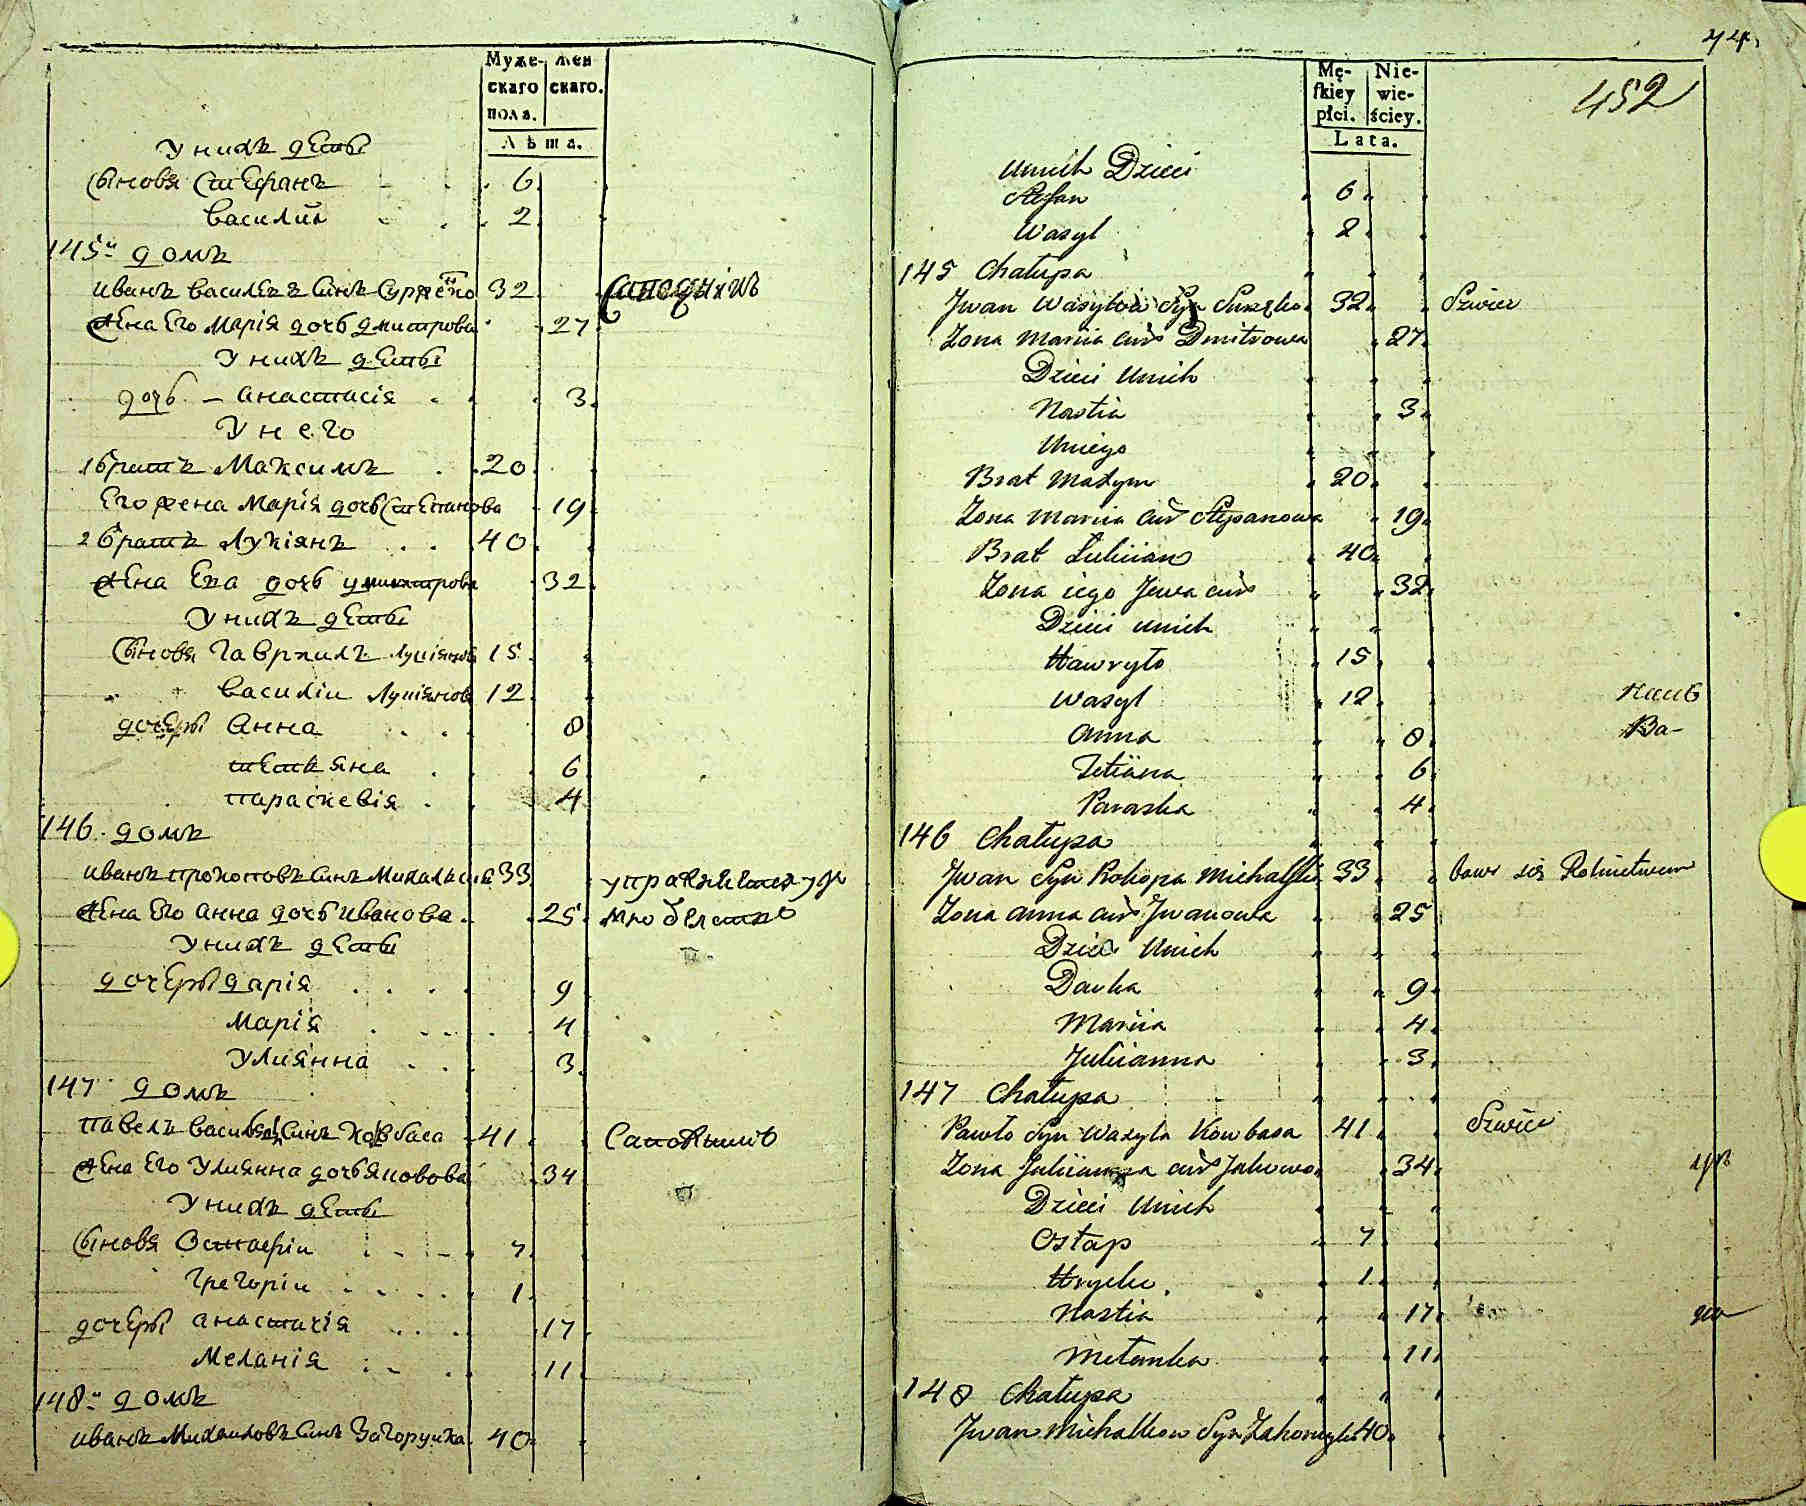 Муже- Жен
скаго скаго.
пола.
Лѣта.
У нихъ дети
сыновя Стефанъ 6
василии 2
145й домъ
иванъ василевъ синъ 32 Сапожникъ
жена Его Марія дочь дмитрова 27
У нихъ дети
дочь – анастасія 3
У него
1 братъ Максимъ 20
Его жена Марія дочь Степанова 19
2 братъ Лукіянъ 40
жена Ева дочь дмитрова 32
У нихъ дети
сыновя Гаврилъ Лукіяновъ 15
василіи Лукіяновъ 12
дочеры Анна 8
тетяна 6
параскевія 4
146. домъ
иванъ прокоповъ синъ 33 упражняется
жена Его анна дочь иванова 25
У нихъ дети
дочеры дарія 9
Марія 4
Улиянна 3
147 домъ
павелъ синъ Ковбаса 41 Сапожникъ
жена Его Улиянна дочь яковова 34
У нихъ дети
сыновя Остафіи 7
Грегоріи 1
дочеры анастасія 17
Меланія 11
148й домъ
иванъ Михаиловъ синъ 40
74.
452
Mę- Nie-
ſkiey wie-
płci. ściey.
Lata.
Unich Dzieci
Stefan 6
Wasyl 2
145 Chałupa
Jwan Wasylow Syn 32 Szwiec
Zona Maria Dmitrowa 27
Dzieci Unich
Nastia 3
Uniego
Brat Maxym 20
Zona Maria Stepanowa 19
Brat Łukiian 40
Zona iego Jewa 32
Dzieci Unich
Hawryło 15
Wasyl 12
Anna 8
Tetiana 6
Paraska 4
146 Chałupa
Jwan Syn Prokopa 33 bawi się Rolnictwem
Zona Anna Jwanowa 25
Dzieci Unich
Darka 9
Mariia 4
Juliianna 3
147 Chałupa
Pawło Syn Wasyla Kowbasa 41 Szwiec
Zona Juliianna Jakowowa 34
Dzieci Unich
Ostap 7
Hryćko 1
Nastia 17
Melanka 11
148 Chałupa
Jwan Michałkow Syn 40